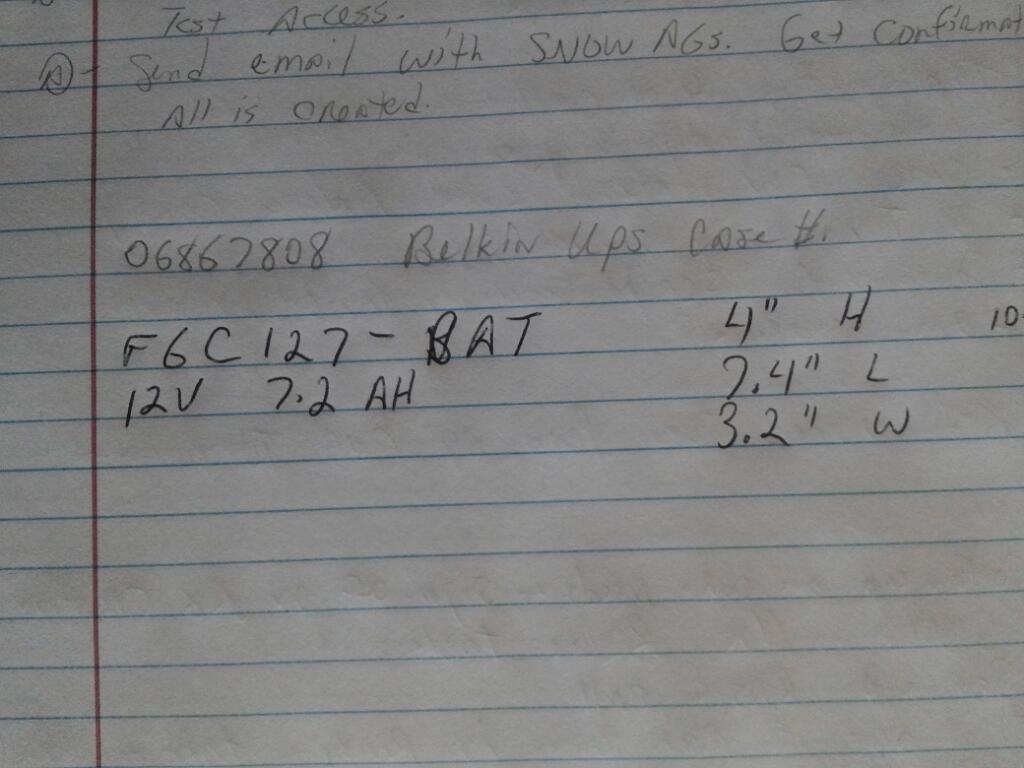 Test Access.
A - Send email with SNOW AGs. Get Confirmat
All is created.
06867808 Belkin Ups Case #.
F6C127-BAT 4" H 10
12V 7.2 AH 7.4" L
3.2" W